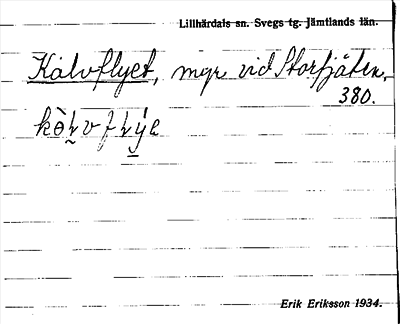 Lillhärdals sn. Svegs tg. Jämtlands län.
Kalvflyet, myr vid Storfjäten.
380.
Erik Eriksson 1934.